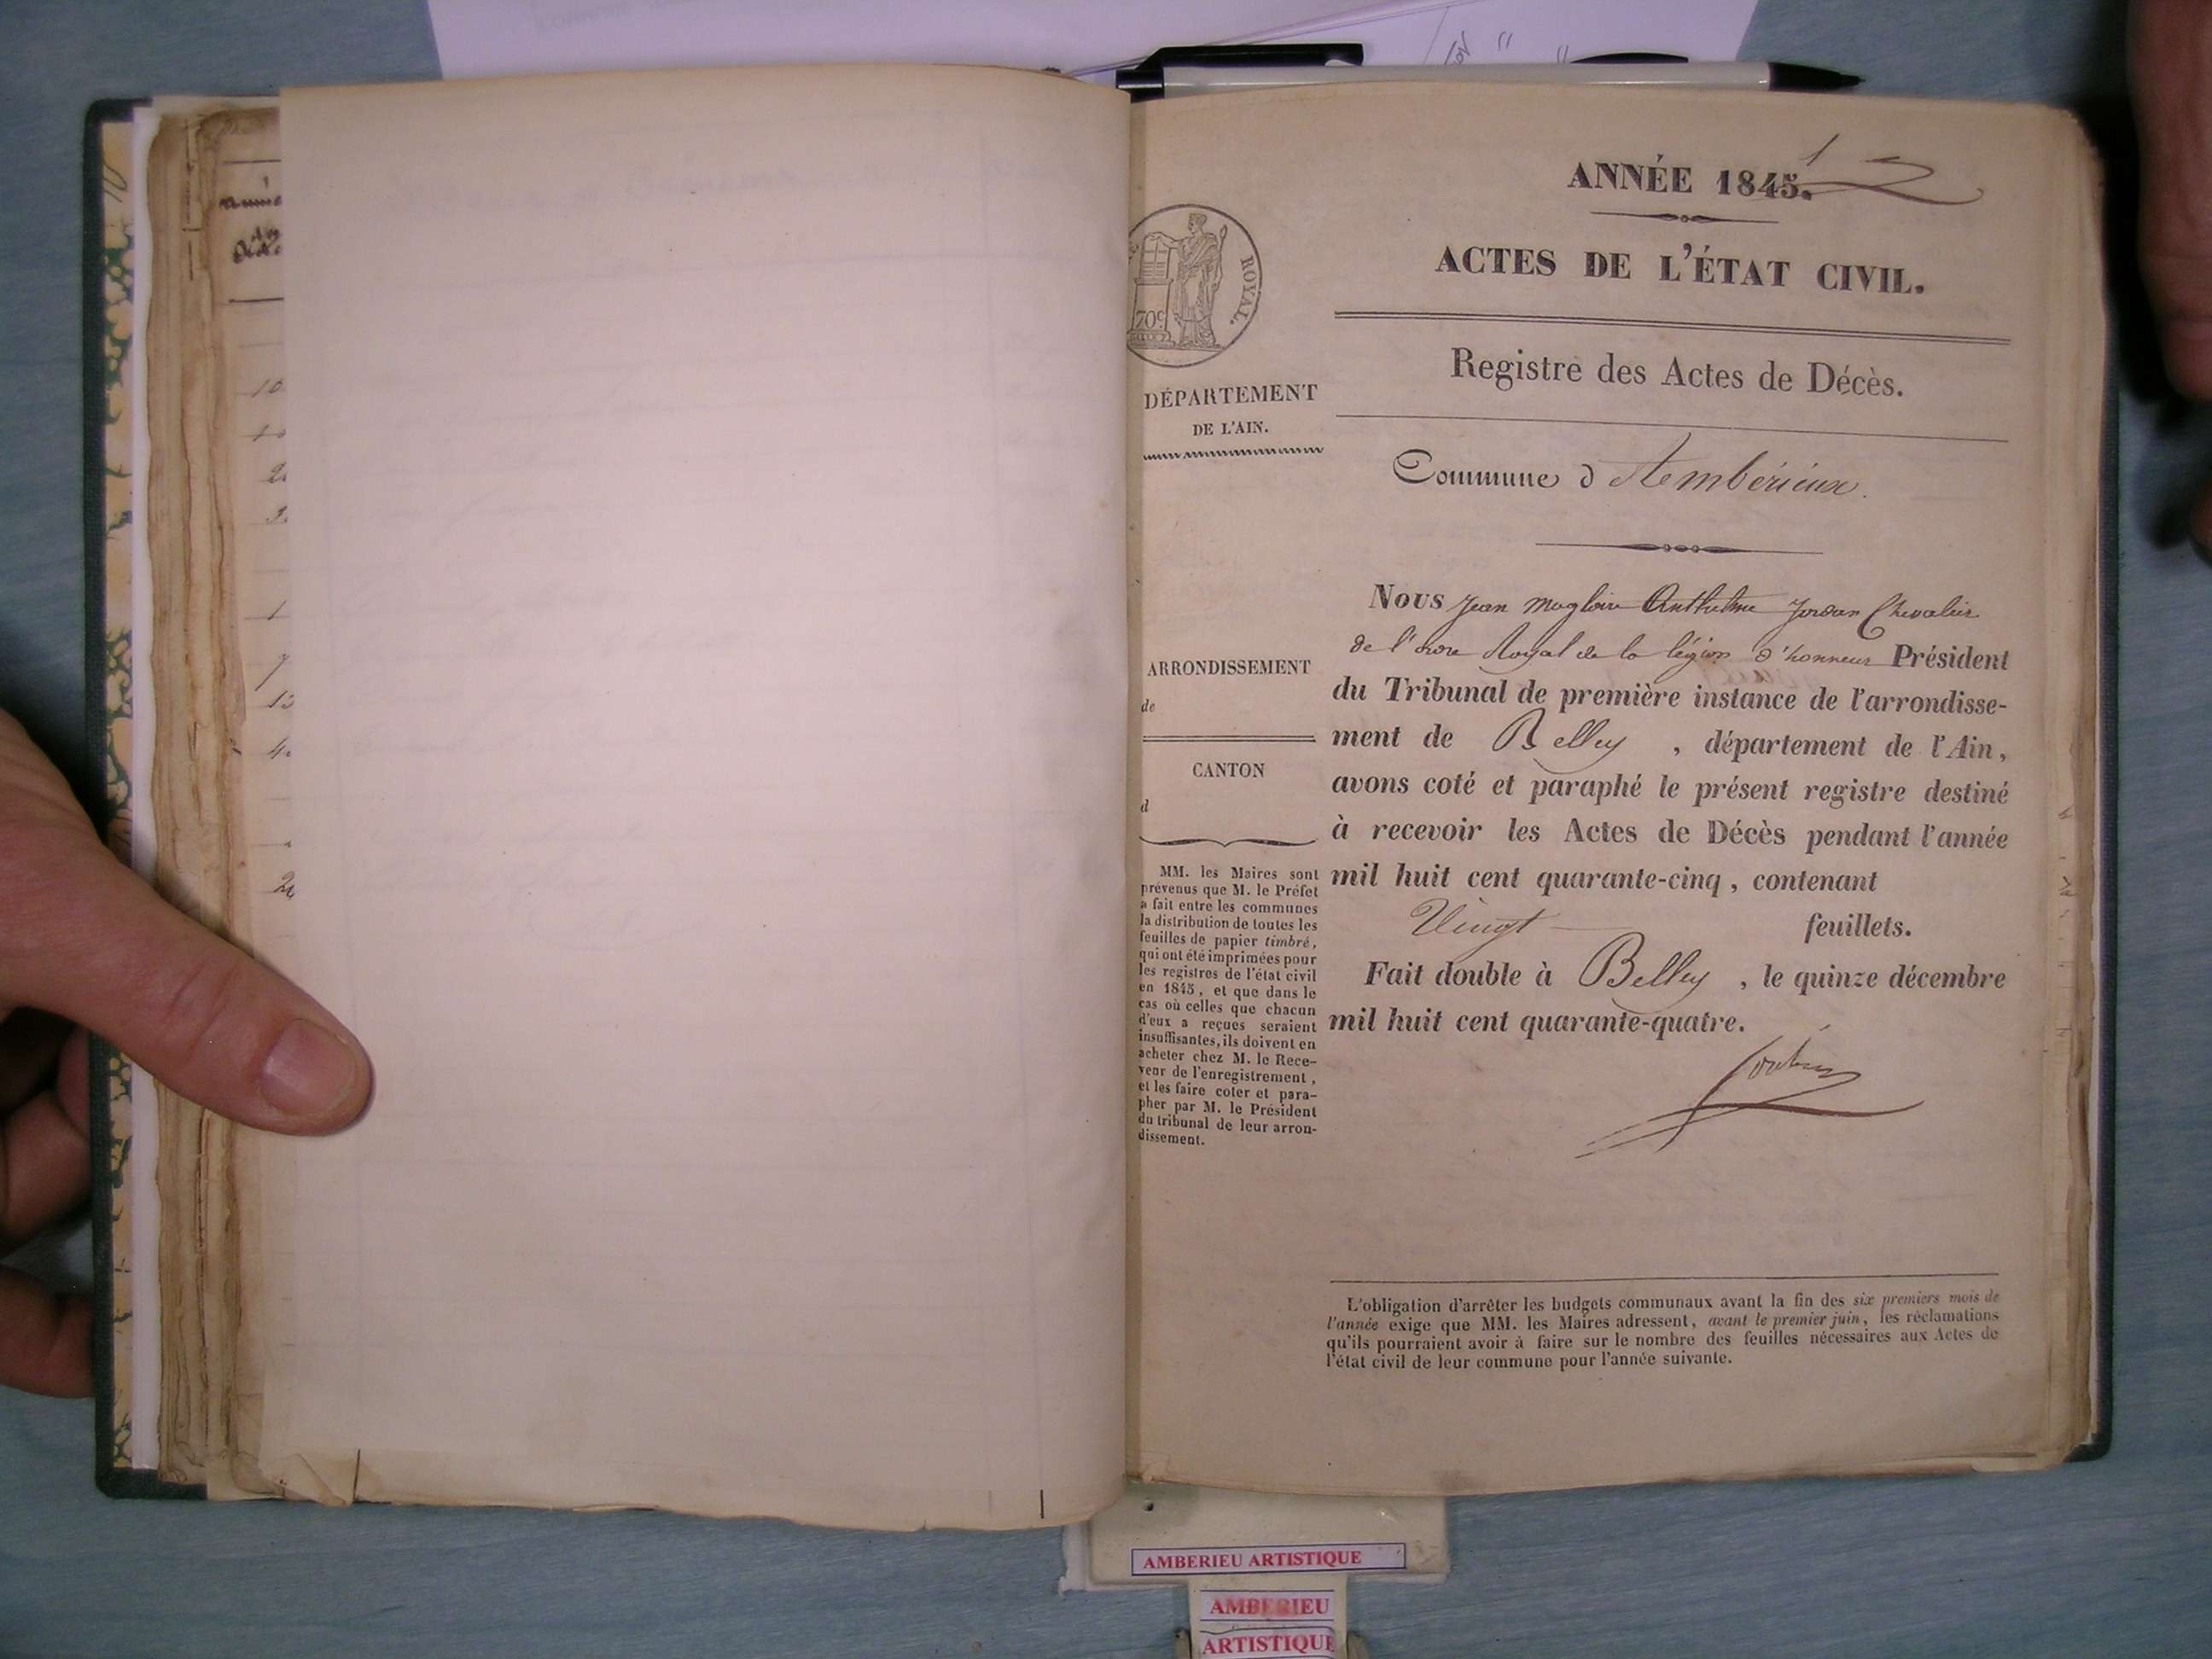 ANNÉE 1845.
1
ACTES DE L'ÉTAT CIVIL.
ROYAL.
70c
Registre des Actes de Décès.
DÉPARTEMENT
DE L'AIN.
Commune d'Ambérieux.
Nous Jean Magloire Anthelme Jordan Chevalier
de l'ordre Royal de la légion d'honneur Président
du Tribunal de première instance de l'arrondisse-
ment de Belley, département de l'Ain,
avons coté et paraphé le présent registre destiné
à recevoir les Actes de Décès pendant l'année
mil huit cent quarante-cinq, contenant
Vingt feuillets.
Fait double à Belley, le quinze décembre
mil huit cent quarante-quatre.
ARRONDISSEMENT
de
CANTON
d
MM. les Maires sont
prévenus que M. le Préfet
a fait entre les communes
la distribution de toutes les
feuilles de papier timbré,
qui ont été imprimées pour
les registres de l'état civil
en 1845, et que dans le
cas où celles que chacun
d'eux a reçues seraient
insuffisantes, ils doivent en
acheter chez M. le Rece-
veur de l'enregistrement,
et les faire coter et para-
pher par M. le Président
du tribunal de leur arron-
dissement.
L'obligation d'arrêter les budgets communaux avant la fin des six premiers mois de
l'année exige que MM. les Maires adressent, avant le premier juin, les réclamations
qu'ils pourraient avoir à faire sur le nombre des feuilles nécessaires aux Actes de
l'état civil de leur commune pour l'année suivante.
AMBERIEU ARTISTIQUE
AMBERIEU
ARTISTIQUE